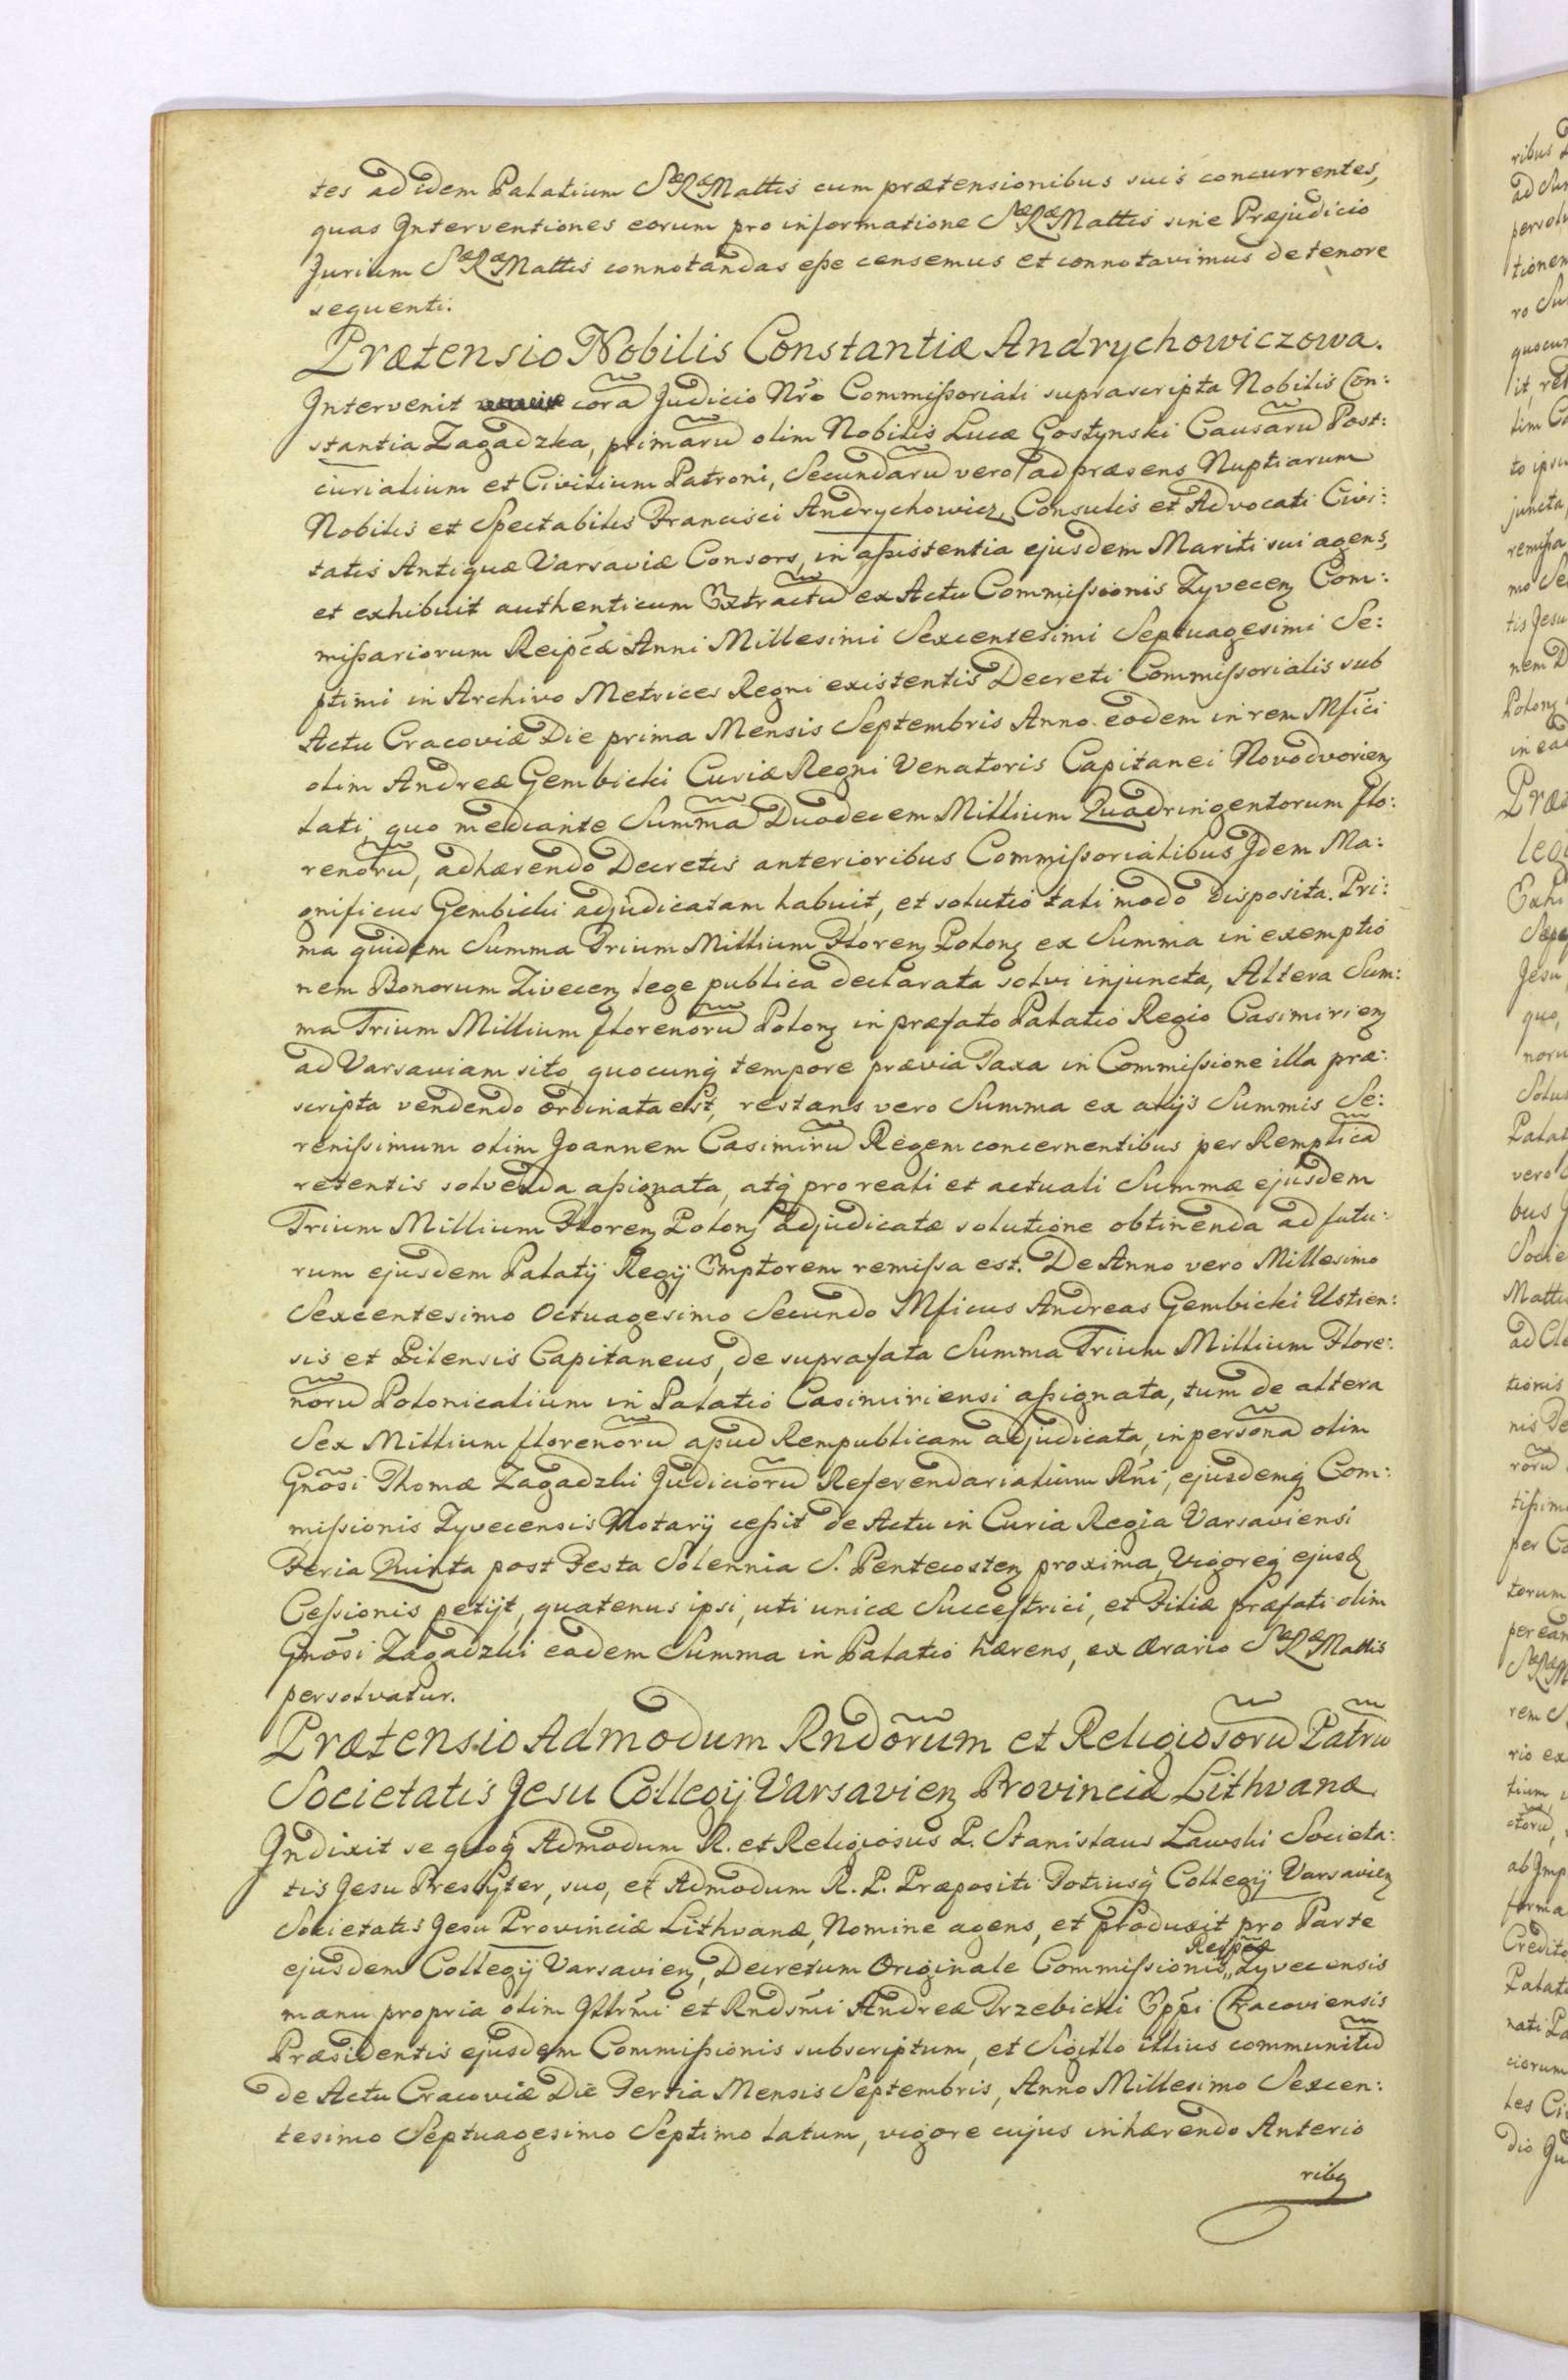 tes ad idem Palatium Sæ Ræ Mattis cum prætensionibus suis concurrentes,
quas Interventiones eorum pro informatione Sæ Ræ Mattis sine Præjudicio
Jurium Sæ Ræ Mattis connotandas eße censemus et connotavimus de tenore
sequenti.
Prætensio Nobilis Constantiæ Andrychowiczowa.
Intervenit corã Judicio Nrõ Commißoriali suprascripta Nobilis Con:
stantia Zagadzka, primarũ olim Nobilis Lucæ Gostynski Causarũ Post:
curialium et Civilium Patroni, Secundarũ vero ad præsens Nuptiarum
Nobilis et Spectabilis Francisci Andrychowicz, Consulis et Advocati Civi:
tatis Antiquæ Varsaviæ Consors, in aßistentia ejusdem Mariti sui agens,
et exhibuit authenticum Extractũ ex Actu Commißionis Zyvecen̄ Com:
mißariorum Reipcæ Anni Millesimi Sexcentesimi Septuagesimi Se:
ptimi in Archivo Metrices Regni existentis Decreti Commißorialis sub
Actu Cracoviæ Die prima Mensis Septembris Anno eodem in rem Mfici
olim Andreæ Gembicki Curiæ Regni Venatoris Capitanei Novodvorien̄
lati, quo mediante Summã Duodecem Millium Quadringentorum flo:
renorũ, adhærendo Decretis anterioribus Commißorialibus Idem Ma:
gnificus Gembicki adjudicatam habuit, et solutio tali modo disposita. Pri:
ma quidem Summa Trium Millium Floren̄ Polon̄ ex Summa in exemptio
nem Bonorum Zivecen̄ lege publica declarata solvi injuncta, Altera Sum:
ma Trium Millium florenorũ Polon̄ in præfato Palatio Regio Casimirien̄
ad Varsaviam sito, quocunq̢ tempore prævia Taxa in Commißione illa præ:
scripta vendendo ordinata est, restans vero Summa ex alijs Summis Se:
renißimum olim Joannem Casimirũ Regem concernentibus per Remplicã
retentis solvenda aßignata, atq̢ pro reali et actuali Summæ ejusdem
Trium Millium Floren̄ Polon̄ adjudicatæ solutione obtinenda ad futu:
rum ejusdem Palatij Regij Emptorem remißa est. De Anno vero Millesimo
Sexcentesimo Octuagesimo Secundo Mficus Andreas Gembicki Ustien:
sis et Pilensis Capitaneus, de suprafata Summa Trium Millium Flore:
norũ Polonicalium in Palatio Casimiriensi aßignata, tum de altera
Sex Millium florenorũ apud Rempublicam adjudicata, in personã olim
Gnõsi Thomæ Zagadzki Judiciorũ Referendarialium Rñi, ejusdemq̢ Com:
mißionis Zyvecensis Notarij ceßit de Actu in Curia Regia Varsaviensi
Feria Quinta post Festa Solennia S. Pentecosten̄ proxima, Vigoreq̢ ejusd̄
Ceßionis petijt, quatenus ipsi, uti unicæ Succeßtrici, et Filiæ præfati olim
Gnõsi Zagadzki eadem Summa in Palatio hærens, ex Ærario Sæ Ræ Mattis
persolvatur.
Prætensio Admodum Rndõrum et Religiosorũ Patrũ
Societatis Jesu Collegij Varsavien̄ Provinciæ Lithvanæ.
Indixit se quoq̢ Admodum R. et Religiosus P. Stanislaus Ławski Societa:
tis Jesu Presbyter, suo, et Admodum R. P. Præpositi Totiusq̢ Collegij Varsavien̄
Societatis Jesu Provinciæ Lithvanæ, Nomine agens, et produxit pro Parte
ejusdem Collegij Varsavien̄, Decretum Originale Commißionis Reipcæ Zyvecensis
manu propria olim Illrmi et Rndsmi Andreæ Trzebicki Eppi Cracoviensis
Præsidentis ejusdem Commißionis subscriptum, et Sigillo illius communitũ
de Actu Cracoviæ Die Tertia Mensis Septembris, Anno Millesimo Sexcen:
tesimo Septuagesimo Septimo latum, vigore cujus inhærendo Anterio
ribq̢